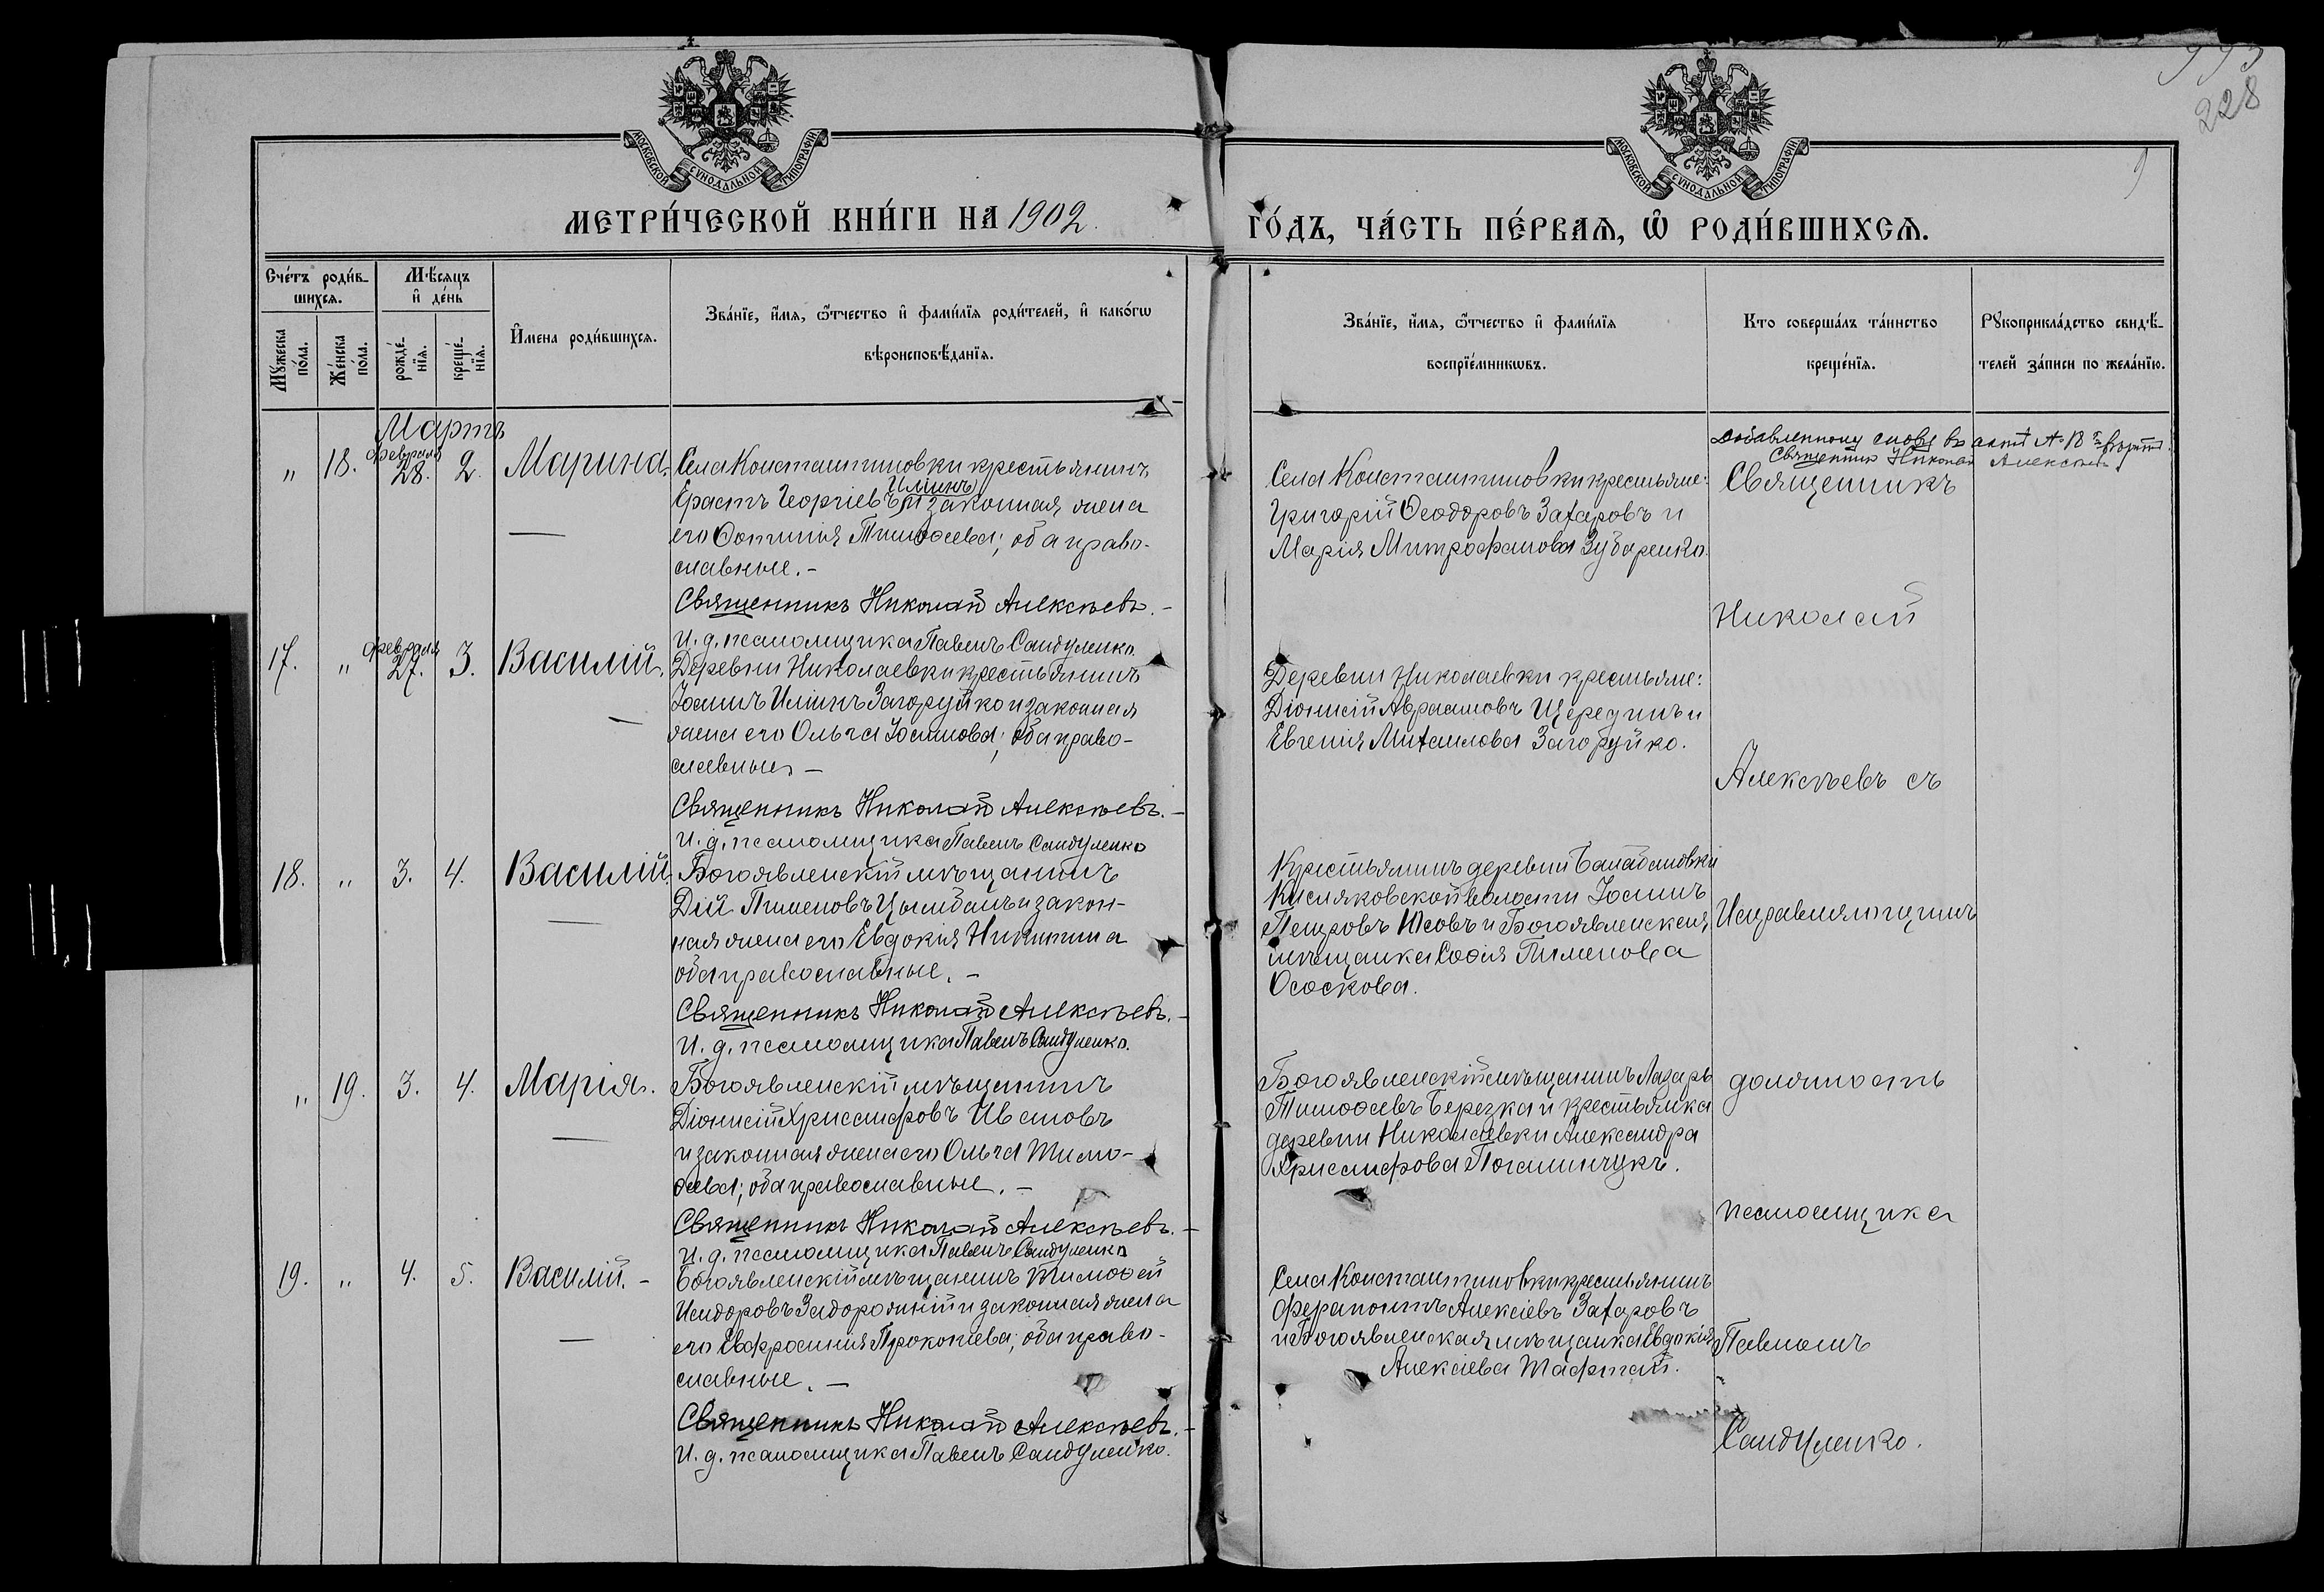 993
228
МОСКОВСКОЙ СУНОДАЛЬНОЙ ТИПОГРАФІИ
МОСКОВСКОЙ СУНОДАЛЬНОЙ ТИПОГРАФІИ
МЕТРИ́ЧЕСКОЙ КНИ́ГИ НА 1902
ГО́ДЪ, ЧА́СТЬ ПЕ́РВАѦ, Ѽ РОДИ́ВШИХСѦ.
Сче́тъ роди́в-
шихсѧ.
Мѣ́сѧцъ
и҆ де́нь
Мꙋ́жеска
по́ла.
Же́нска
по́ла.
рожде́-
нїѧ.
креще́-
нїѧ.
И҆мена роди́вшихсѧ.
Зва́нїе, и҆́мѧ, ѻ҆́тчество и҆ фами́лїѧ роди́телей, и҆ како́гѡ
вѣроисповѣ́данїѧ.
Зва́нїе, и҆́мѧ, ѻ҆́тчество и҆ фами́лїѧ
воспрїе́мникѡвъ.
Кто соверша́лъ та́инство
креще́нїѧ.
Рꙋкоприкла́дство свидѣ́-
телей за́писи по жела́нїю.
Мартъ
„ 18. февраля 28. 2. Марина.
Села Константиновки крестьянинъ
Ерастъ Георгіевъ Иліинъ и законная жена
его Фотинія Тимоѳеева; оба право-
славные. –
Священникъ Николай Алексѣевъ. –
И. д. псаломщика Павелъ Сандуленко.
Села Константиновки крестьяне:
Григорій Ѳеодоровъ Захаровъ и
Марія Митрофанова Зубаренко.
Добавленному слову въ актѣ № 18
Священникъ Николай Алексѣевъ
17. „ февраля 27. 3. Василій.
Деревни Николаевки крестьянинъ
Іоаннъ Илiинъ Загоруйко и законная
жена его Ольга Іоаннова; оба право-
славные –
Священникъ Николай Алексѣевъ. –
И. д. псаломщика Павелъ Сандуленко
Деревни Николаевки крестьяне:
Діонисій Авраамовъ Щерединъ и
Евгенія Михаилова Загоруйко.
18. „ 3. 4. Василій.
Богоявленскій мѣщанинъ
Дій Пименовъ Цымбалъ и закон-
ная жена его Евдокія Никитина
оба православные. –
Священникъ Николай Алексѣевъ. –
И. д. псаломщика Павелъ Сандуленко.
Крестьянинъ деревни Балабановки
Кисляковской волости Іоаннъ
Петровъ Юсовъ и Богоявленская
мѣщанка Софія Пименова
Ососкова.
„ 19. 3. 4. Марія.
Богоявленскій мѣщанинъ
Діонисій Хрисанфовъ Ивановъ
и законная жена его Ольга Тимо-
ѳеева; оба православные. –
Священникъ Николай Алексѣевъ. –
И. д. псаломщика Павелъ Сандуленко
Богоявленскій мѣщанинъ Лазарь
Тимоѳеевъ Березка и крестьянка
деревни Николаевки Александра
Хрисанфова
19. „ 4. 5. Василій. –
Богоявленскій мѣщанинъ Тимоѳей
Исидоровъ Задорожній и законная жена
его Евфросинія Прокопіева; оба право-
славные. –
Священникъ Николай Алексѣевъ. –
И. д. псаломщика Павелъ Сандуленко.
Села Константиновки крестьянинъ
Ферапонтъ Алексіевъ Захаровъ
и Богоявленская мѣщанка Евдокія
Алексіева Тафтай.
Священникъ
Николай
Алексѣевъ съ
Исправляющимъ
должность
псаломщика
Павломъ
Сандуленко.